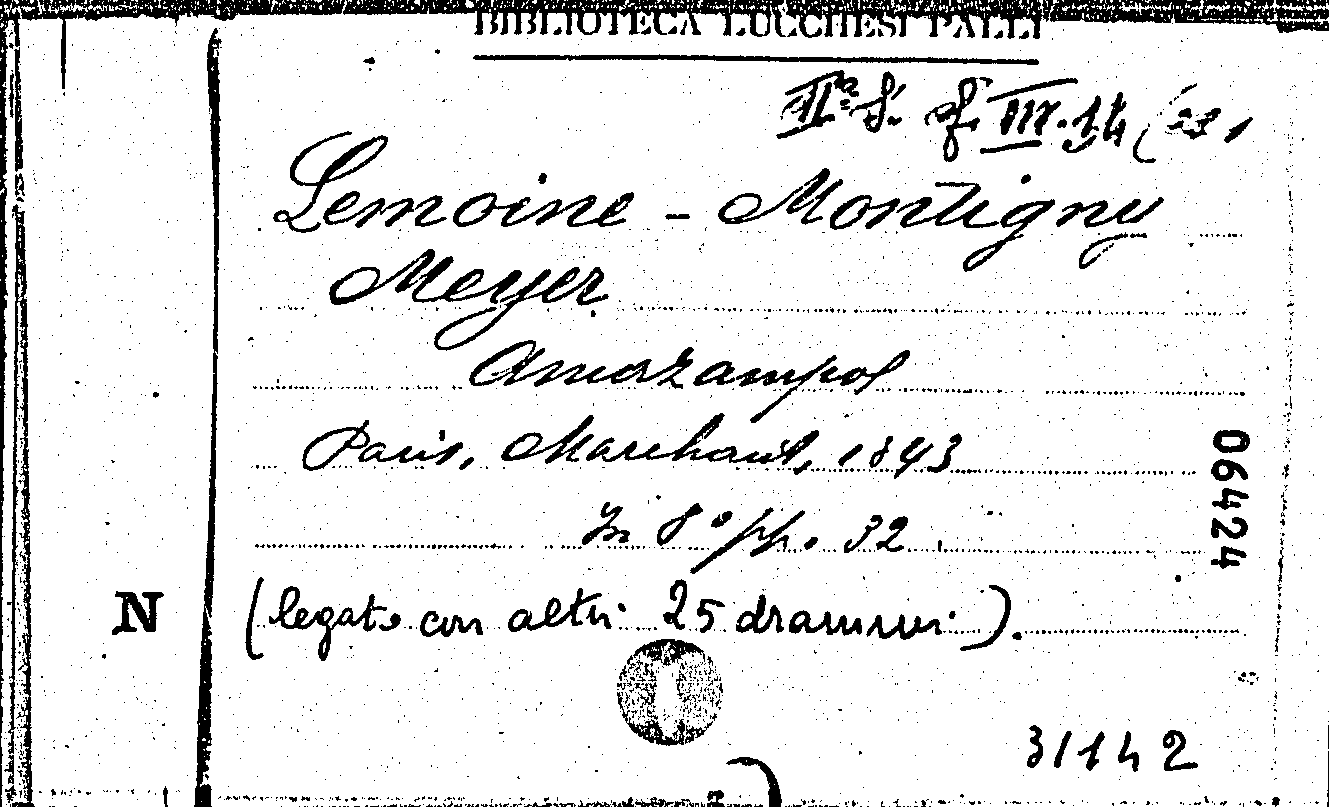 BIBLIOTECA LUCCHESI PALLI
IIª S. III. 14
Lemoine - Montigny
Meyer
Amazampos
Paris, Marchant, 1843
06424
In 8° pp. 32
N
(legato con altri 25 drammi).
31142